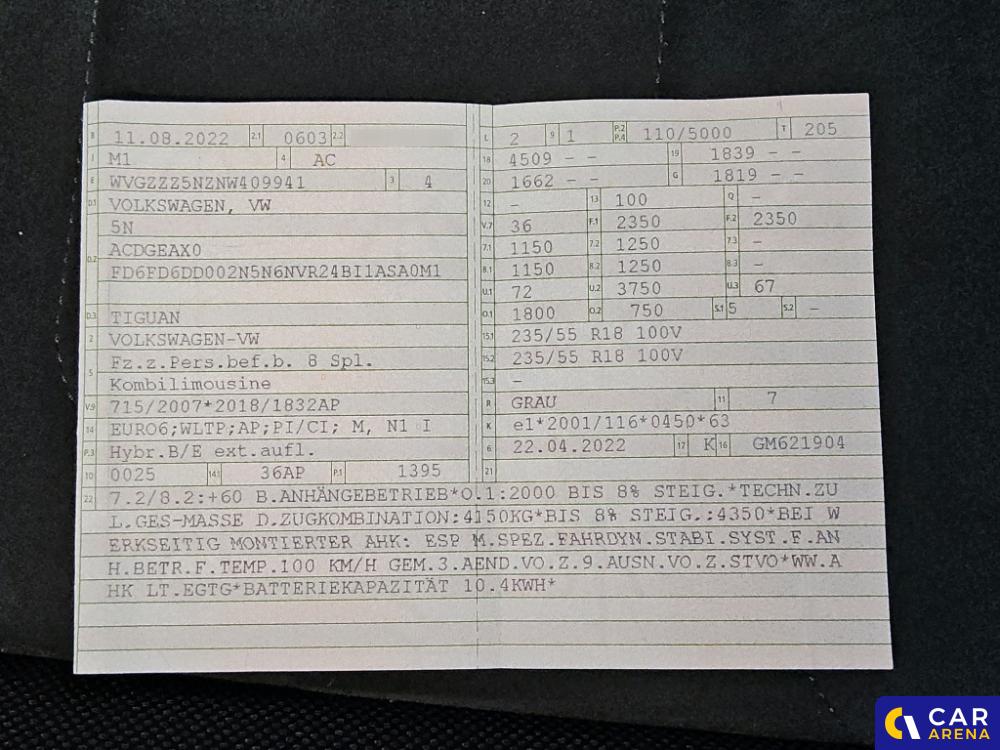 B 11.08.2022 2.1 0603 2.2
J M1 4 AC
E WVGZZZ5NZNW409941 3 4
D.1 VOLKSWAGEN, VW
5N
D.2 ACDGEAX0
FD6FD6DD002N5N6NVR24BI1ASA0M1
D.3 TIGUAN
2 VOLKSWAGEN-VW
5 Fz.z.Pers.bef.b. 8 Spl.
Kombilimousine
V.9 715/2007*2018/1832AP
14 EURO6;WLTP;AP;PI/CI; M, N1 I
P.3 Hybr.B/E ext.aufl.
10 0025 14.1 36AP P.1 1395
L 2 9 1 P.2 P.4 110/5000 T 205
18 4509 - - 19 1839 - -
20 1662 - - G 1819 - -
12 - 13 100 Q -
V.7 36 F.1 2350 F.2 2350
7.1 1150 7.2 1250 7.3 -
8.1 1150 8.2 1250 8.3 -
U.1 72 U.2 3750 U.3 67
O.1 1800 O.2 750 S.1 5 S.2 -
15.1 235/55 R18 100V
15.2 235/55 R18 100V
15.3 -
R GRAU 11 7
K e1*2001/116*0450*63
6 22.04.2022 17 K 16 GM621904
21
22 7.2/8.2:+60 B.ANHÄNGEBETRIEB*O.1:2000 BIS 8% STEIG.*TECHN.ZU
L.GES-MASSE D.ZUGKOMBINATION:4150KG*BIS 8% STEIG.:4350*BEI W
ERKSEITIG MONTIERTER AHK: ESP M.SPEZ.FAHRDYN.STABI.SYST.F.AN
H.BETR.F.TEMP.100 KM/H GEM.3.AEND.VO.Z.9.AUSN.VO.Z.STVO*WW.A
HK LT.EGTG*BATTERIEKAPAZITÄT 10.4KWH*
CAR
ARENA